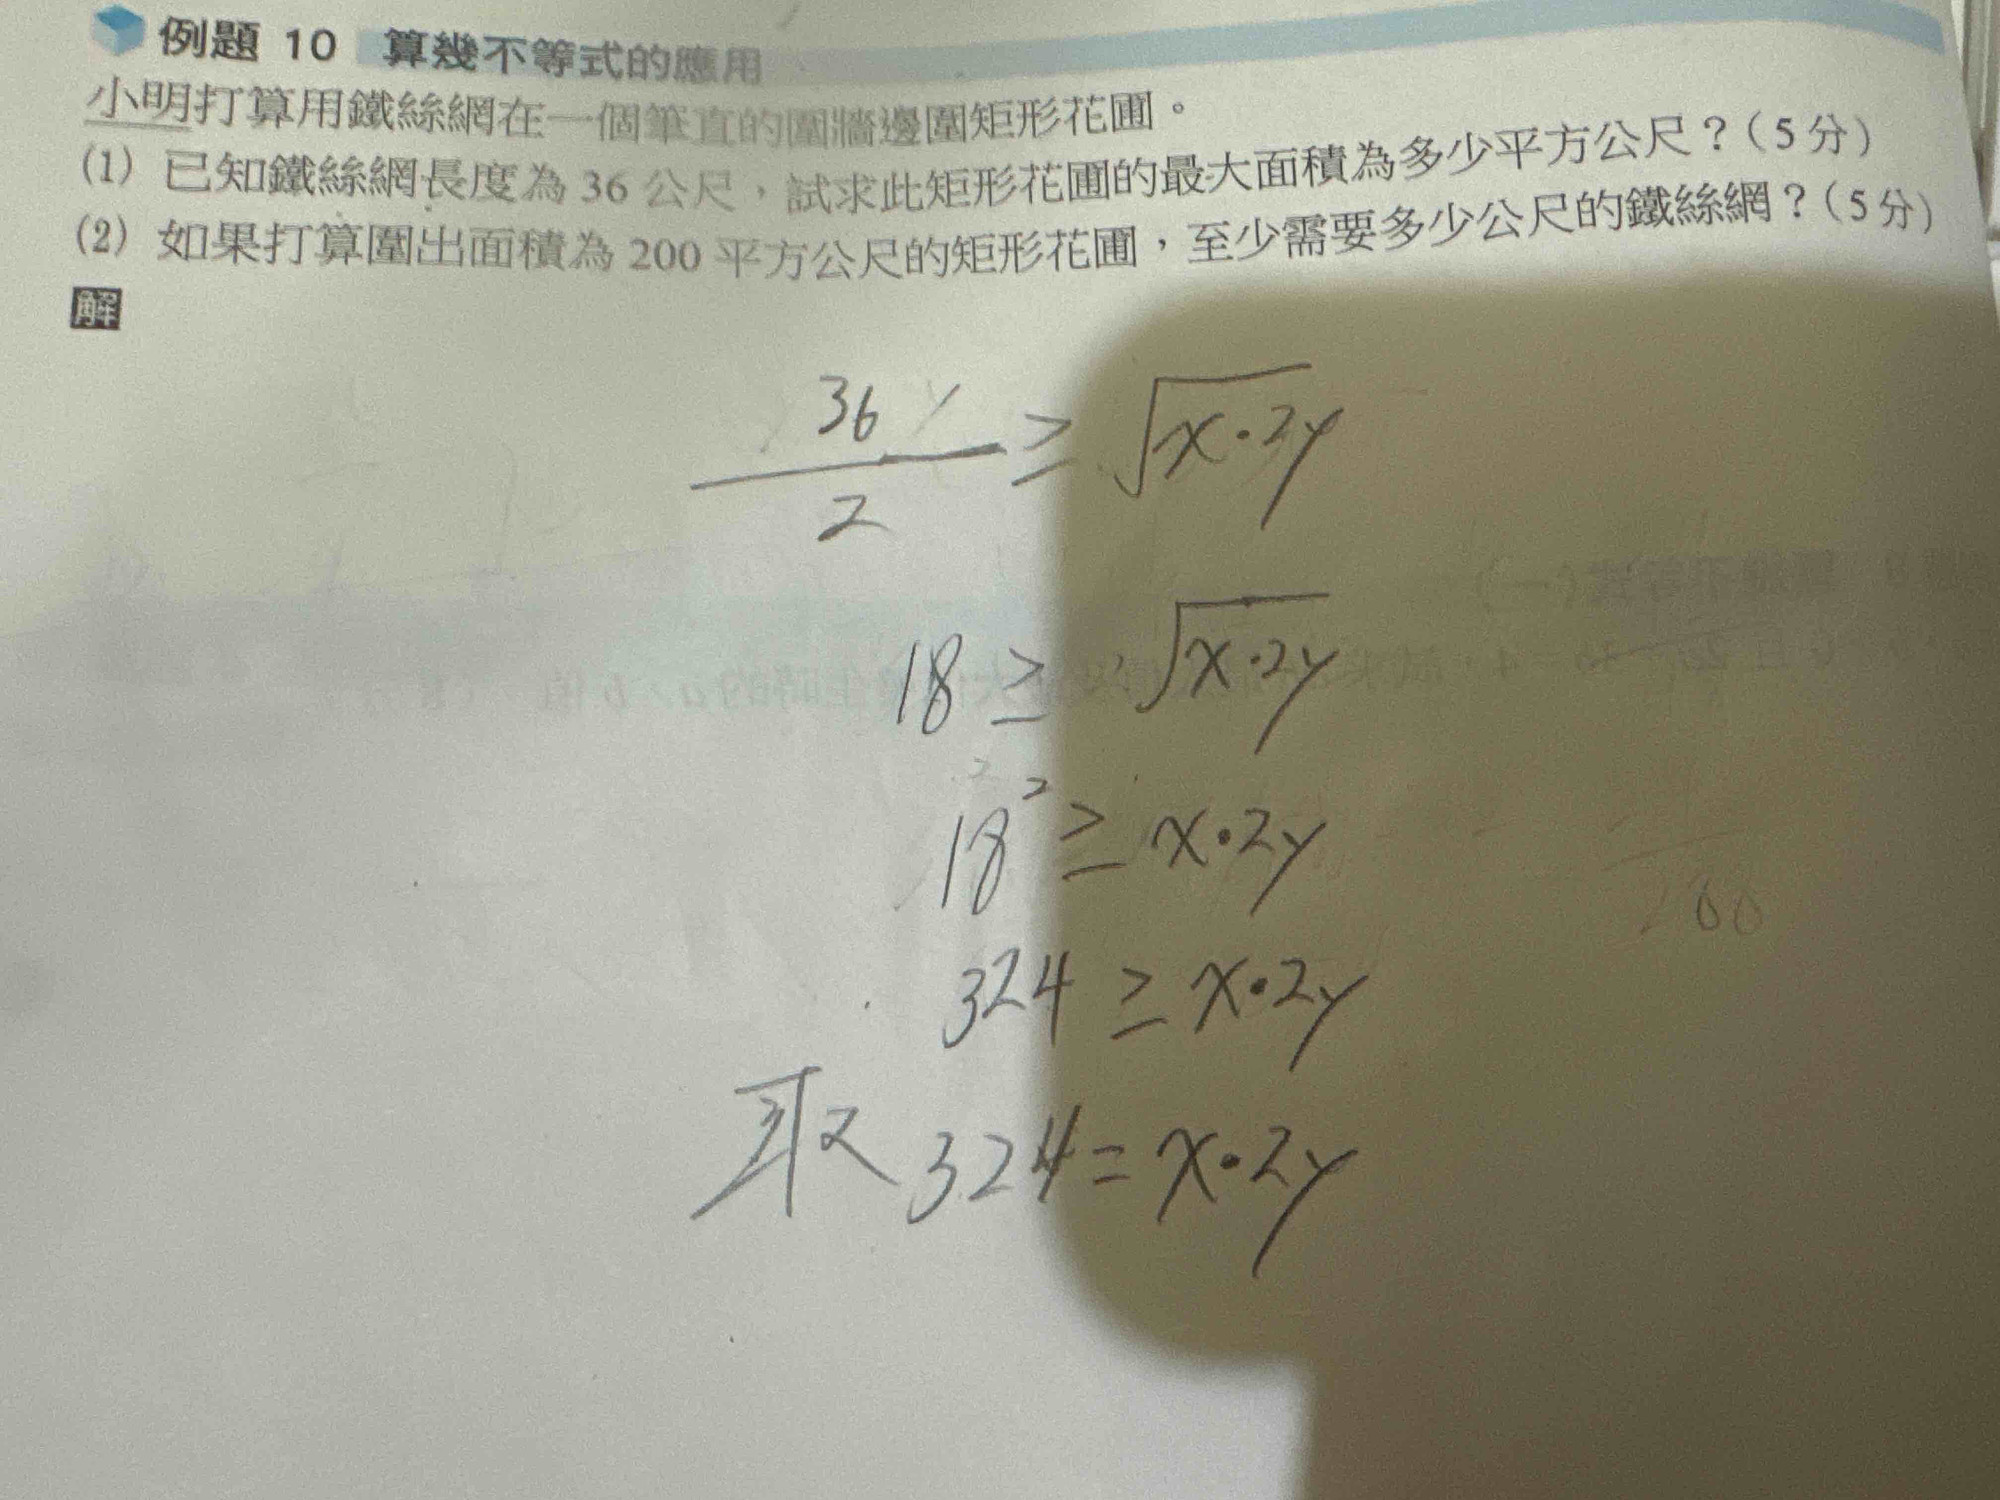 例題 10 算幾不等式的應用
小明打算用鐵絲網在一個筆直的圍牆邊圍矩形花圃。
(1) 已知鐵絲網長度為 36 公尺，試求此矩形花圃的最大面積為多少平方公尺？(5分)
(2) 如果打算圍出面積為 200 平方公尺的矩形花圃，至少需要多少公尺的鐵絲網？(5分)
解
36/2 ≥ √(x·2y)
18 ≥ √(x·2y)
18² ≥ x·2y
324 ≥ x·2y
取 324 = x·2y